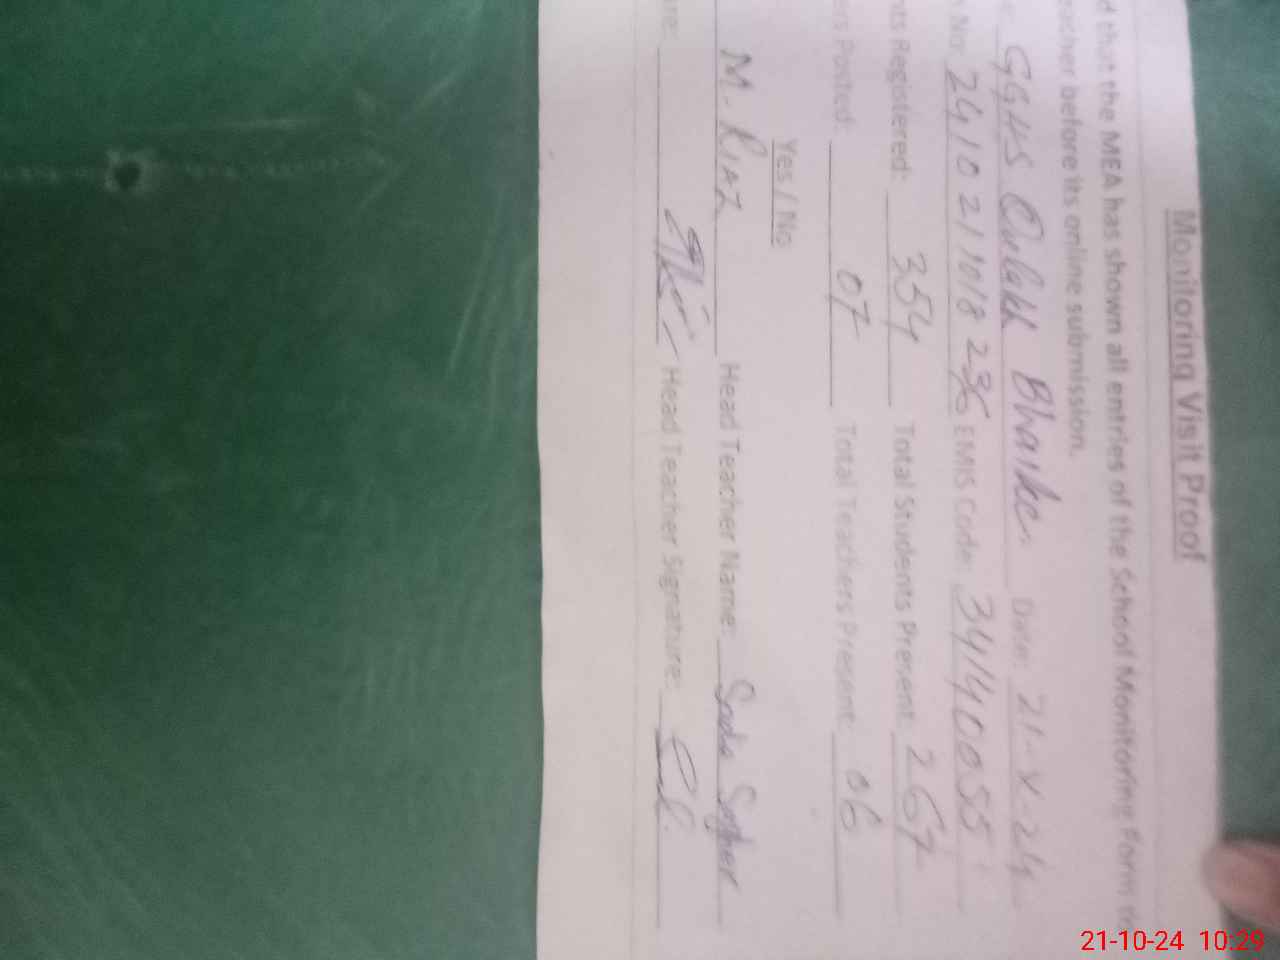 Monitoring Visit Proof
d that the MEA has shown all entries of the School Monitoring Form
eacher before its online submission.
GGHS Bhaike Date: 21-X-24
n No: EMIS Code: 34140055
nts Registered: 354 Total Students Present: 267
ers Posted: 07 Total Teachers Present: 06
Yes / No
M. RIAZ Head Teacher Name:
ure: Head Teacher Signature:
21-10-24 10:29